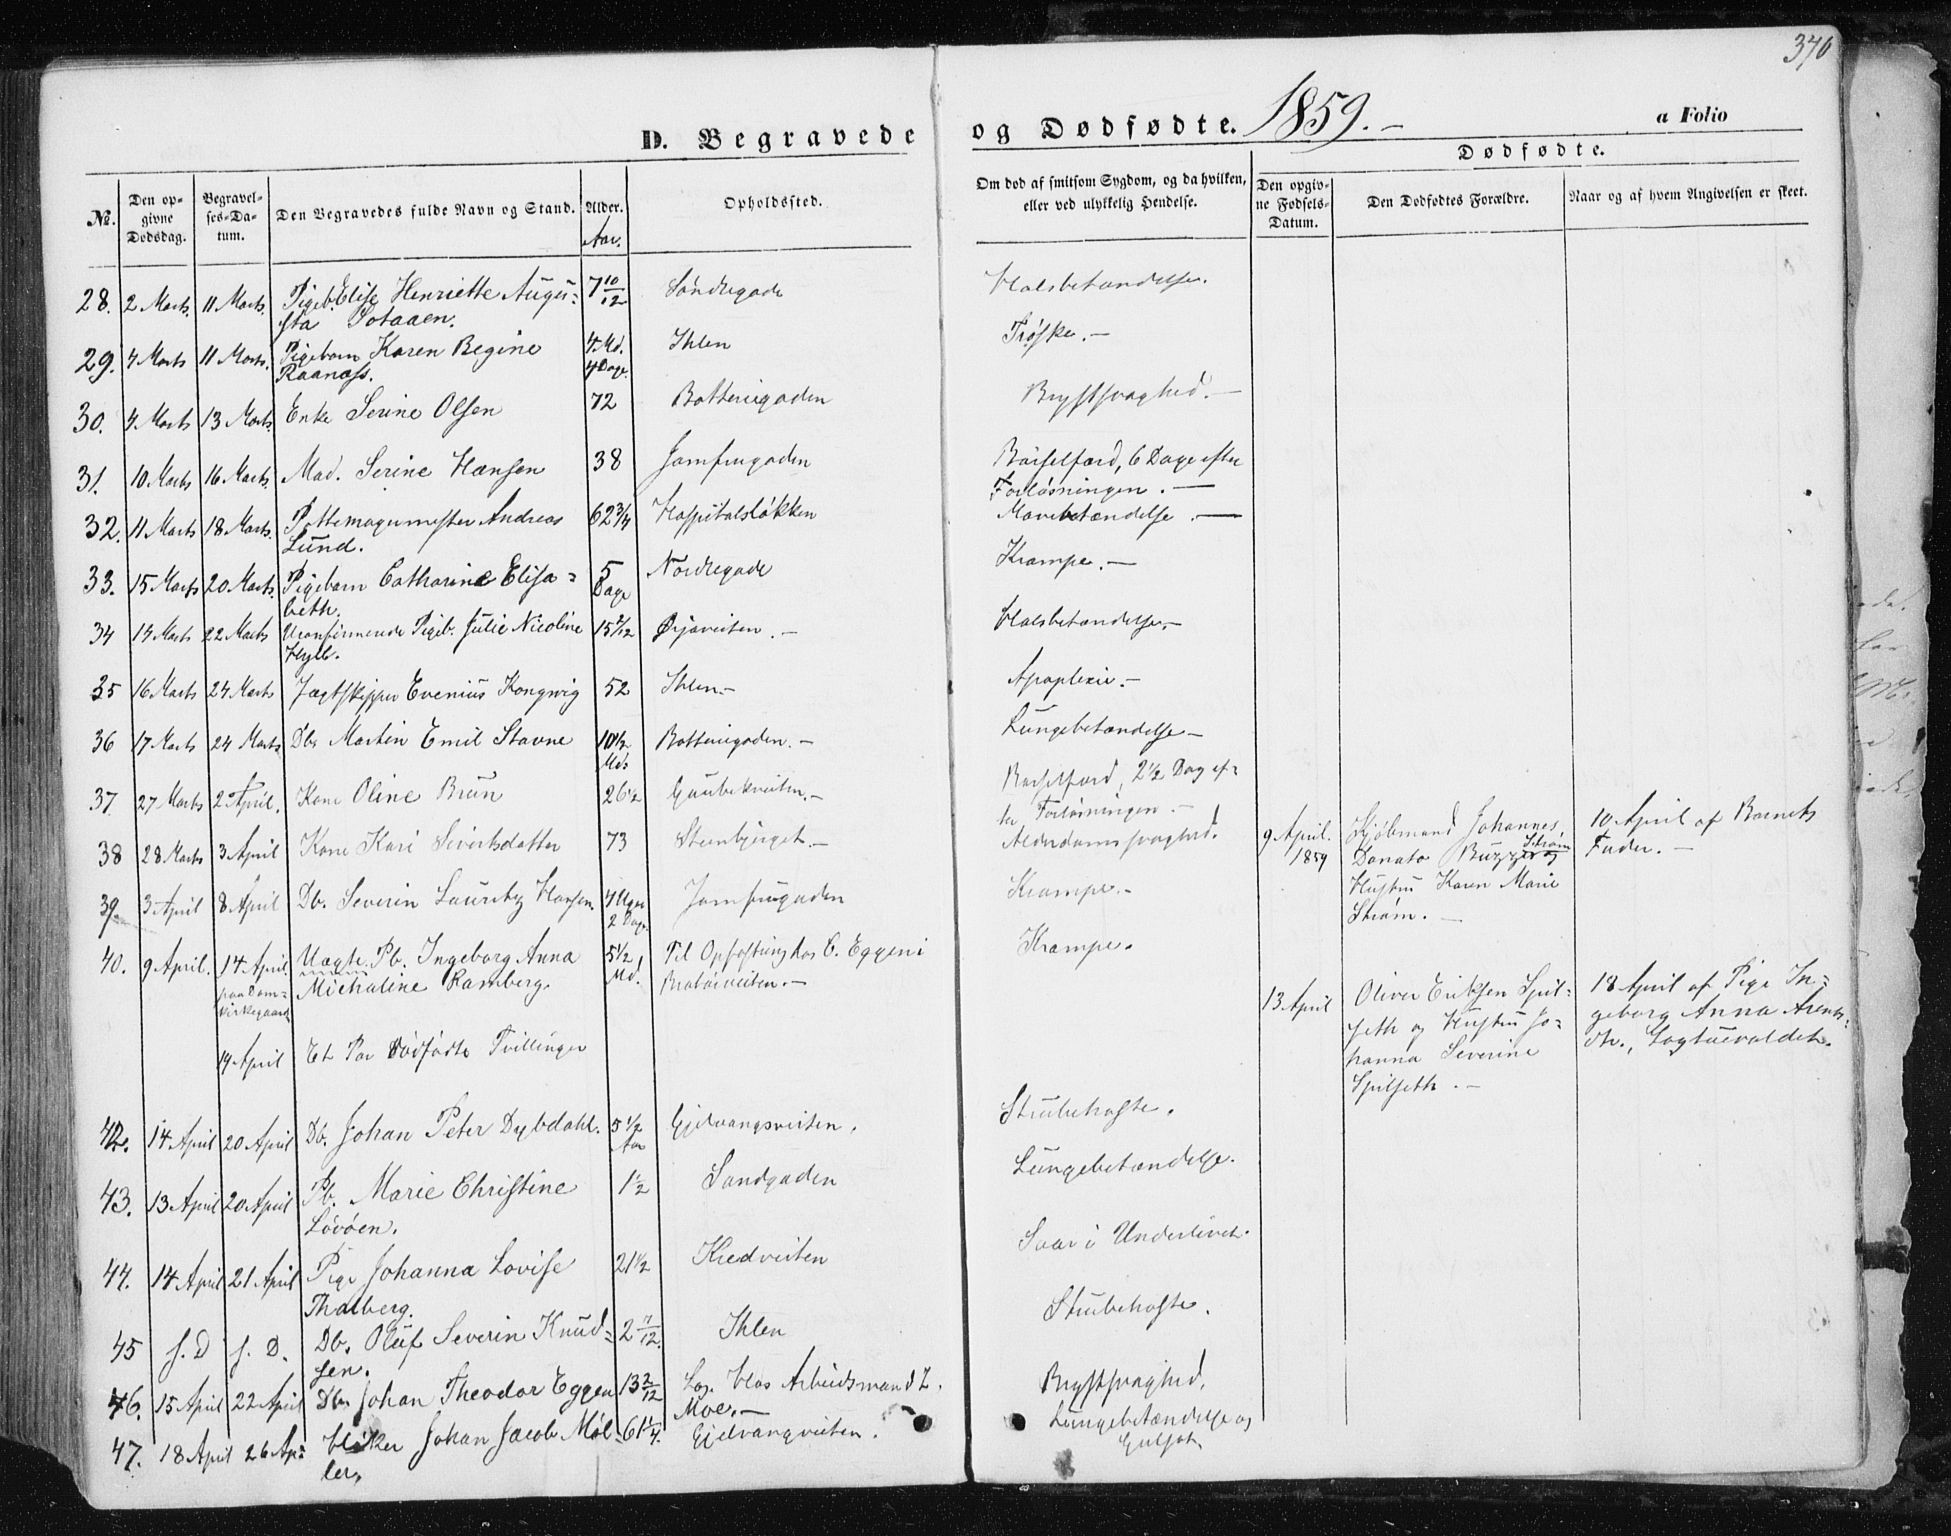 370
D. Begravede og Dødfødte. 1859. a Folio
Dødfødte.
No. Den opgivne Dødsdag. Begravelses-Datum. Den Begravedes fulde Navn og Stand. Alder. Opholdssted. Om død af smitsom Sygdom, og da hvilken, eller ved ulykkelig Hendelse. Den opgivne Fødsels-Datum. Den Dødfødtes Forældre. Naar og af hvem Angivelsen er skeet.
Aar.
28. 2 Marts. 11 Marts. Pigeb. Elise Henriette Augu- 7 10/12 Søndregade Halsbetændelse.
sta Potaaen.
29. 4 Marts 11 Marts. Pigebarn Karen Regine 4 Md. Ihlen Trøske.-
Raanæss. 4 Dage.
30. 4 Marts 13 Marts. Enke Serine Olsen 72 Batterigaden Brystsvaghed.-
31. 10 Marts 16 Marts. Mad. Serine Hansen 38 Jomfrugaden Barselfærd, 6 Dage efter
Forløsningen.-
32. 11 Marts 18 Marts. Pottemagermester Andreas 62 3/4 Hospitalsløkken Mavebetændelse.-
Lund.
33. 15 Marts 20 Marts. Pigebarn Catharine Elisa= 5 Nordregade Krampe.-
beth. Dage
34 14 Marts 22 Marts Ukonfirmerede Pigeb. Julie Nicoline 15 2/12 Ørjaveiten.- Halsbetændelse.-
35 16 Marts 24 Marts Jægtskipper Evenius Kongsvig 52 Ihlen.- Apoplexie.-
36 17 Marts 24 Marts Db. Martin Emil Stavne 10 1/2 Batterigaden.- Lungebetændelse-
Md.
37. 27 Marts 2 April. Kone Oline Brun 26 1/2 Gaubekveiten.- Barselfærd, 2 1/2 Dag ef=
ter Forløsningen.-
38 28 Marts 3 April Kone Kari Sivertsdatter 73 Steenbjerget.- Alderdomssvaghed. 9 April. 1859 Kjøbmand Johannes 10 April af Barnets
Donato Buzzi og Fader.-
Strøm
Hustru Karen Marie
Strøm.-
39. 3 April 8 April Db. Severin Lauritz Hansen. 4 Uger Jomfrugaden Krampe.-
2 Dage
40. 9 April. 14 April Uægte Pb. Ingeborg Anna 5 1/2 Til Opfostring hos C. Eggen i Krampe.
paa Dom= Michaline Ramberg. Md. Bratørveiten.-
kirkegaarden
13 April Oliver Eriksen Spil= 18 April af Pige In=
seth og Hustru Jo= geborg Anna Arents=
hanna Severine dtr.,
Spilseth.-
19 April Et Par dødfødte Tvillinger
42. 14 April 20 April Db. Johan Peter Dybdahl. 5 1/2 Ejdvangsveiten. Strubehoste.
Aar
43. 13 April 20 April Pb. Marie Christine 1 1/2 Sandgaden Lungebetændelse.
Lövöen.
44. 14 April 21 April Pige Johanna Lovise 21 1/2 Saar i Underlivet.
Thalberg.
45 s. D s. D. Db. Oluf Severin Knud= 2 11/12 Ihlen Strubehoste.
sen.
46. 15 April 22 April Db. Johan Theodor Eggen 13 2/12 Log. hos Arbeidsmand L. Brystsvaghed.
Moe.-
47. 18 April 26 Apr. Høker Johan Jacob Møl- 61 1/4. Ejdvangveiten. Lungebetændelse og
ler. Gulsot.